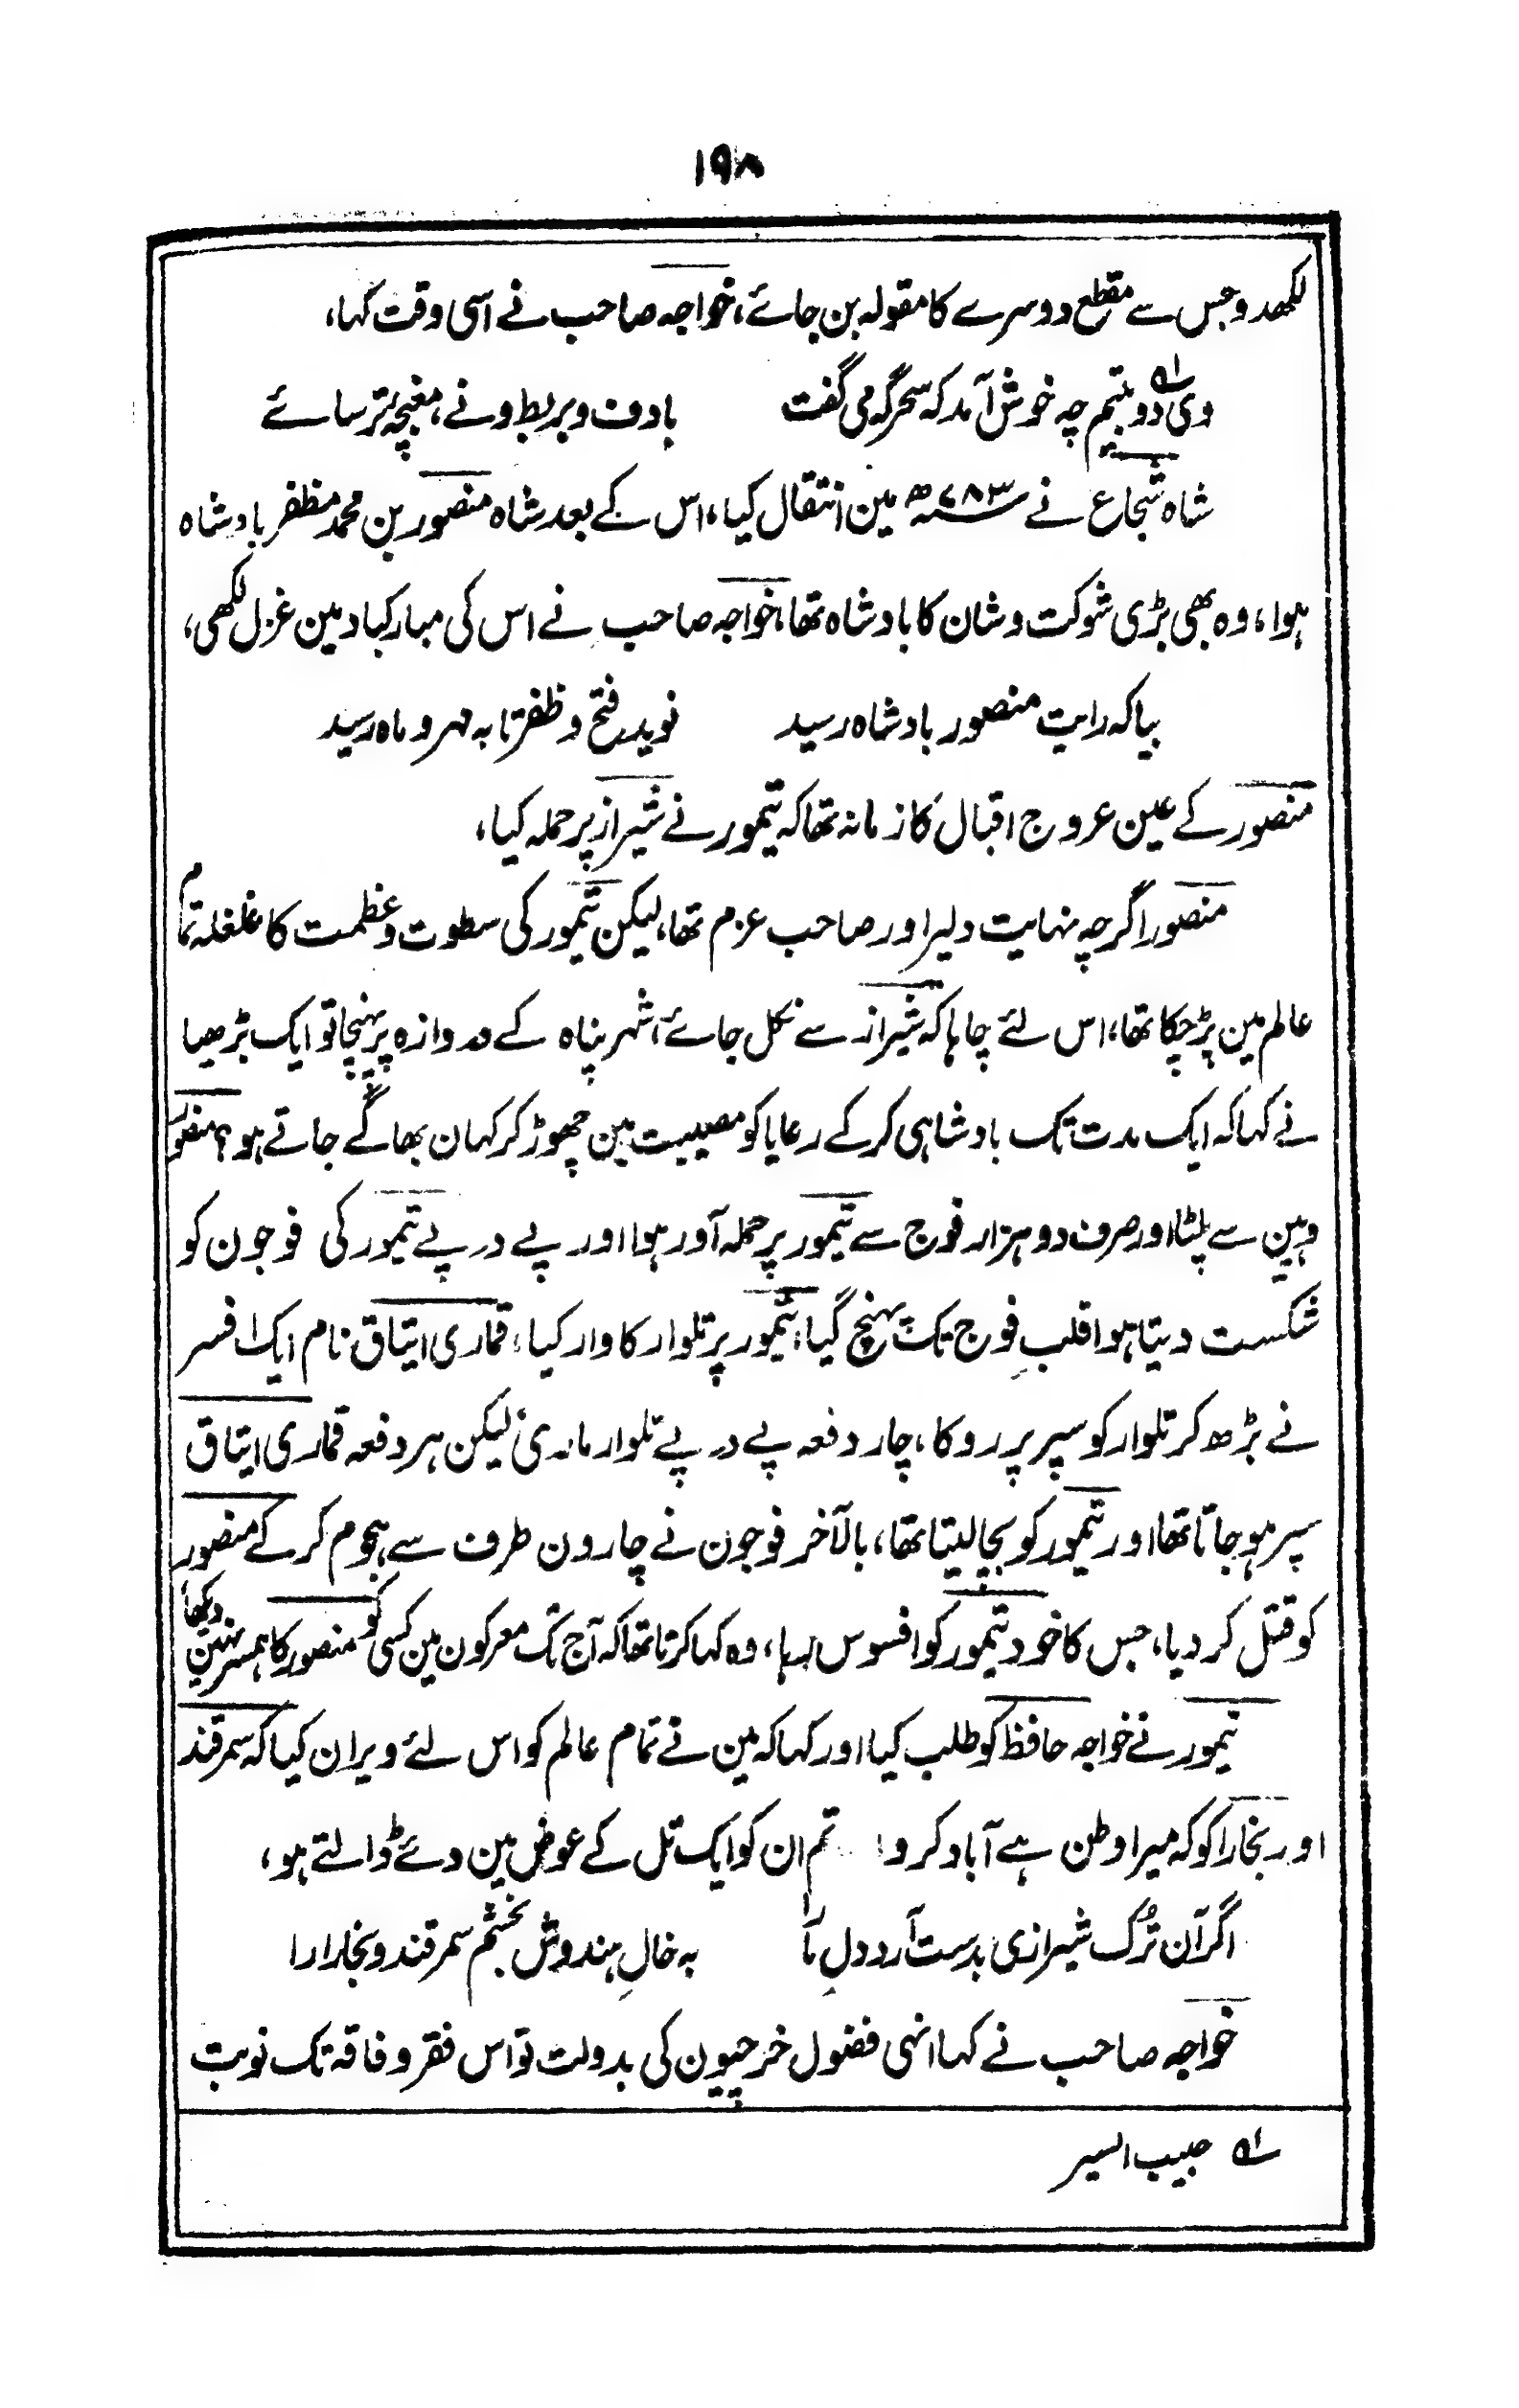 ۱۹۸
لکھدو جس سے مقطع دوسرے کا مقولہ بن جائے، خواجہ صاحب نے اسی وقت کہا،
وی دو بیتم چہ خوش آمد کہ سحرگہ می گفت بادف و بربط و نے، مغبچہ ترسائے
شاہ شجاع نے ۷۸۳ھ مین انتقال کیا، اس کے بعد شاہ منصور بن محمد مظفر بادشاہ
ہوا، وہ بھی بڑی شوکت و شان کا بادشاہ تھا، خواجہ صاحب نے اس کی مبارکباد مین غزل لکھی،
بیا کہ رایت منصور بادشاہ رسید نوید فتح و ظفر تا بہ مہر و ماہ رسید
منصور کے عین عروج اقبال کا زمانہ تھا کہ تیمور نے شیراز پر حملہ کیا،
منصور اگرچہ نہایت دلیر اور صاحب عزم تھا، لیکن تیمور کی سطوت و عظمت کا غلغلہ تمام
عالم مین پڑ چکا تھا، اس لئے چاہا کہ شیراز سے نکل جائے، شہر پناہ کے دروازہ پر پہنچا تو ایک بڑھیا
نے کہا کہ ایک مدت تک بادشاہی کر کے رعایا کو مصیبت مین چھوڑ کر کہان بھاگے جاتے ہو؟ منصور
وہین سے پلٹا اور صرف دو ہزار فوج سے تیمور پر حملہ آور ہوا اور پے در پے تیمور کی فوجون کو
شکست دیتا ہوا قلبِ فوج تک پہنچ گیا، تیمور پر تلوار کا وار کیا، قماری ایتاق نام ایک افسر
نے بڑھ کر تلوار کو سپر پر روکا، چار دفعہ پے در پے تلوار ماری، لیکن ہر دفعہ قماری ایتاق
سپر ہو جاتا تھا اور تیمور کو بچا لیتا تھا، بالآخر فوجون نے چارون طرف سے ہجوم کر کے منصور
کو قتل کر دیا، جس کا خود تیمور کو افسوس رہا، وہ کہا کرتا تھا کہ آج تک معرکون مین کسی کو منصور کا ہمسر نہین دیکھا،
تیمور نے خواجہ حافظ کو طلب کیا اور کہا کہ مین نے تمام عالم کو اس لئے ویران کیا کہ سمرقند
اور بخارا کو کہ میرا وطن ہے آباد کرون تم ان کو ایک تل کے عوض مین دئے ڈالتے ہو،
اگر آن تُرک شیرازی بدست آرد دلِ ما را بہ خالِ ہندوش بخشم سمرقند و بخارا را
خواجہ صاحب نے کہا انہی فضول خرچیون کی بدولت تو اس فقر و فاقہ تک نوبت
لہ حبیب السیر